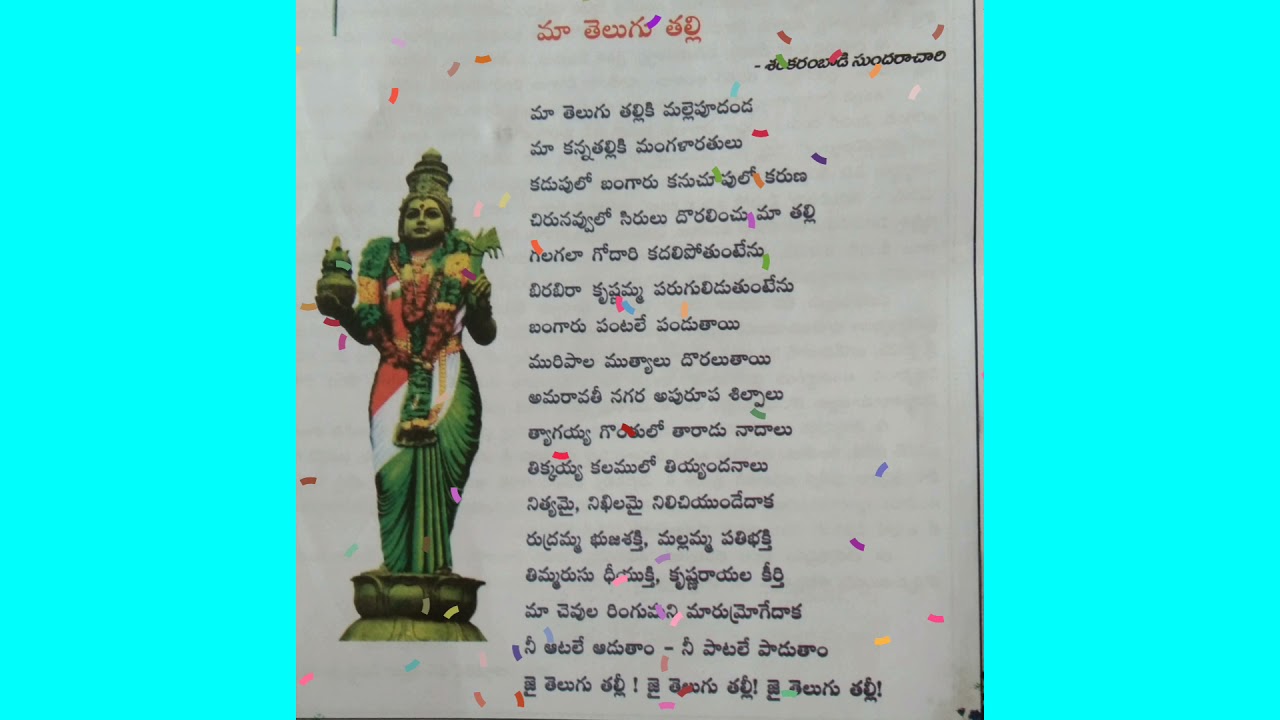 మా తెలుగు తల్లి
- శంకరంబాడి సుందరాచారి
మా తెలుగు తల్లికి మల్లెపూదండ
మా కన్నతల్లికి మంగళారతులు
కడుపులో బంగారు కనుచూపులో కరుణ
చిరునవ్వులో సిరులు దొరలించు మా తల్లి
గలగలా గోదారి కదలిపోతుంటేను
బిరబిరా కృష్ణమ్మ పరుగులిడుతుంటేను
బంగారు పంటలే పండుతాయి
మురిపాల ముత్యాలు దొరలుతాయి
అమరావతీ నగర అపురూప శిల్పాలు
త్యాగయ్య గొంతులో తారాడు నాదాలు
తిక్కయ్య కలములో తియ్యందనాలు
నిత్యమై, నిఖిలమై నిలిచియుండేదాక
రుద్రమ్మ భుజశక్తి, మల్లమ్మ పతిభక్తి
తిమ్మరుసు ధీయుక్తి, కృష్ణరాయల కీర్తి
మా చెవుల రింగుమని మారుమ్రోగేదాక
నీ ఆటలే ఆడుతాం - నీ పాటలే పాడుతాం
జై తెలుగు తల్లీ ! జై తెలుగు తల్లీ! జై తెలుగు తల్లీ!